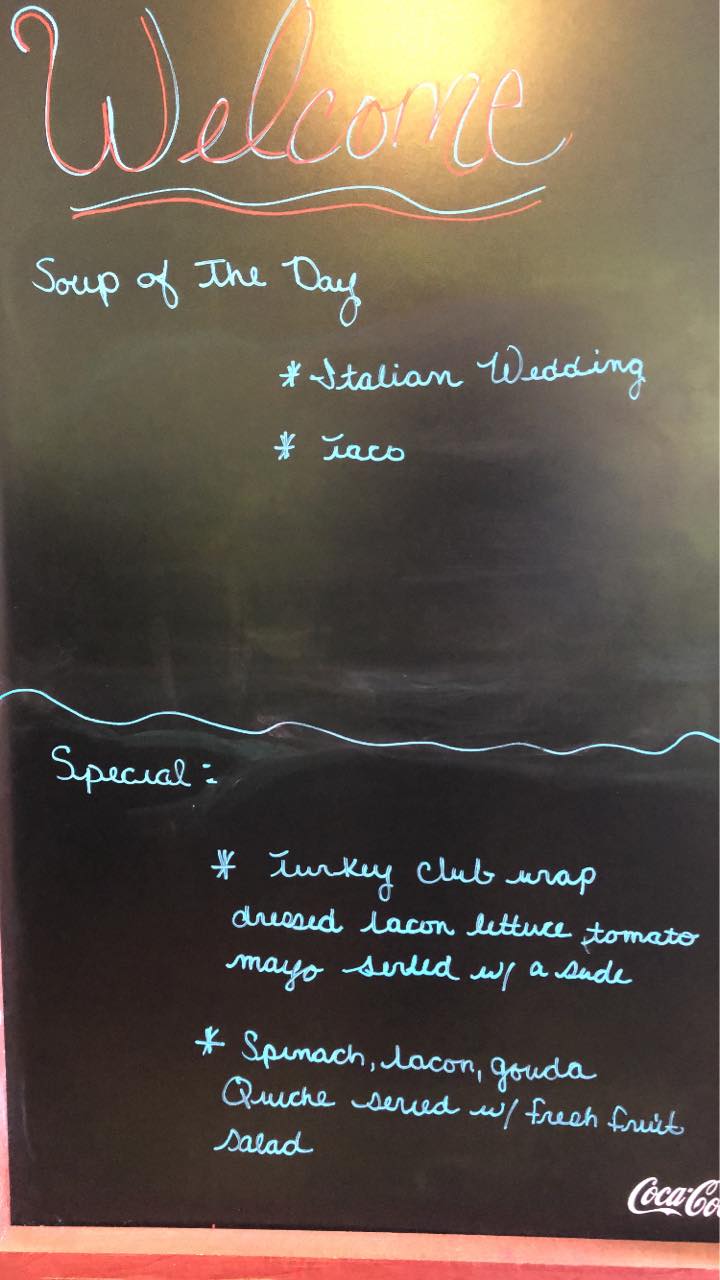 Welcome
Soup of The Day
* Italian Wedding
* Taco
Special:
* Turkey club wrap
dressed bacon lettuce, tomato
mayo served w/ a side
* Spinach, bacon, gouda
Quiche served w/ fresh fruit
salad
Coca-Co